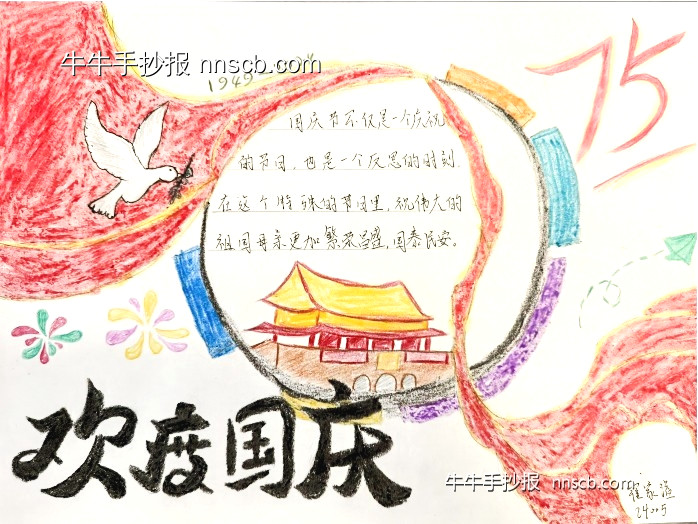 牛牛手抄报 nnscb.com
75
国庆节不仅是一个庆祝
的节日，也是一个反思的时刻
在这个特殊的节日里，祝伟大的
祖国母亲更加繁荣昌盛，国泰民安。
欢度国庆
牛牛手抄报 nnscb.com
24005